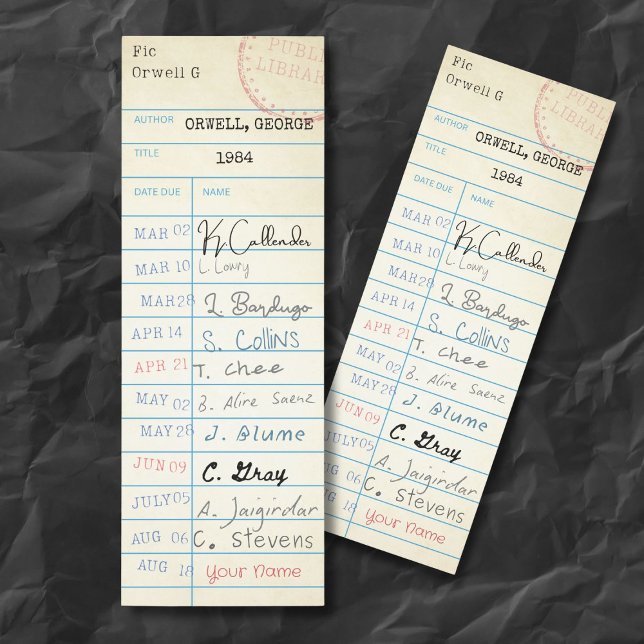 Fic
Orwell G
PUBLIC
LIBRARY
AUTHOR ORWELL, GEORGE
TITLE 1984
DATE DUE NAME
MAR 02 K. Callender
MAR 10 L. Lowry
MAR 28 L. Bardugo
APR 14 S. COLLINS
APR 21 T. Chee
MAY 02 B. Alire Saenz
MAY 28 J. Blume
JUN 09 C. Gray
JULY 05 A. Jaigirdar
AUG 06 C. Stevens
AUG 18 Your Name
Fic
Orwell G
PUBLIC
LIBRARY
AUTHOR ORWELL, GEORGE
TITLE 1984
DATE DUE NAME
MAR 02 K. Callender
MAR 10 L. Lowry
MAR 28 L. Bardugo
APR 14 S. COLLINS
APR 21 T. Chee
MAY 02 B. Alire Saenz
MAY 28 J. Blume
JUN 09 C. Gray
JULY 05 A. Jaigirdar
AUG 06 C. Stevens
AUG 18 Your Name